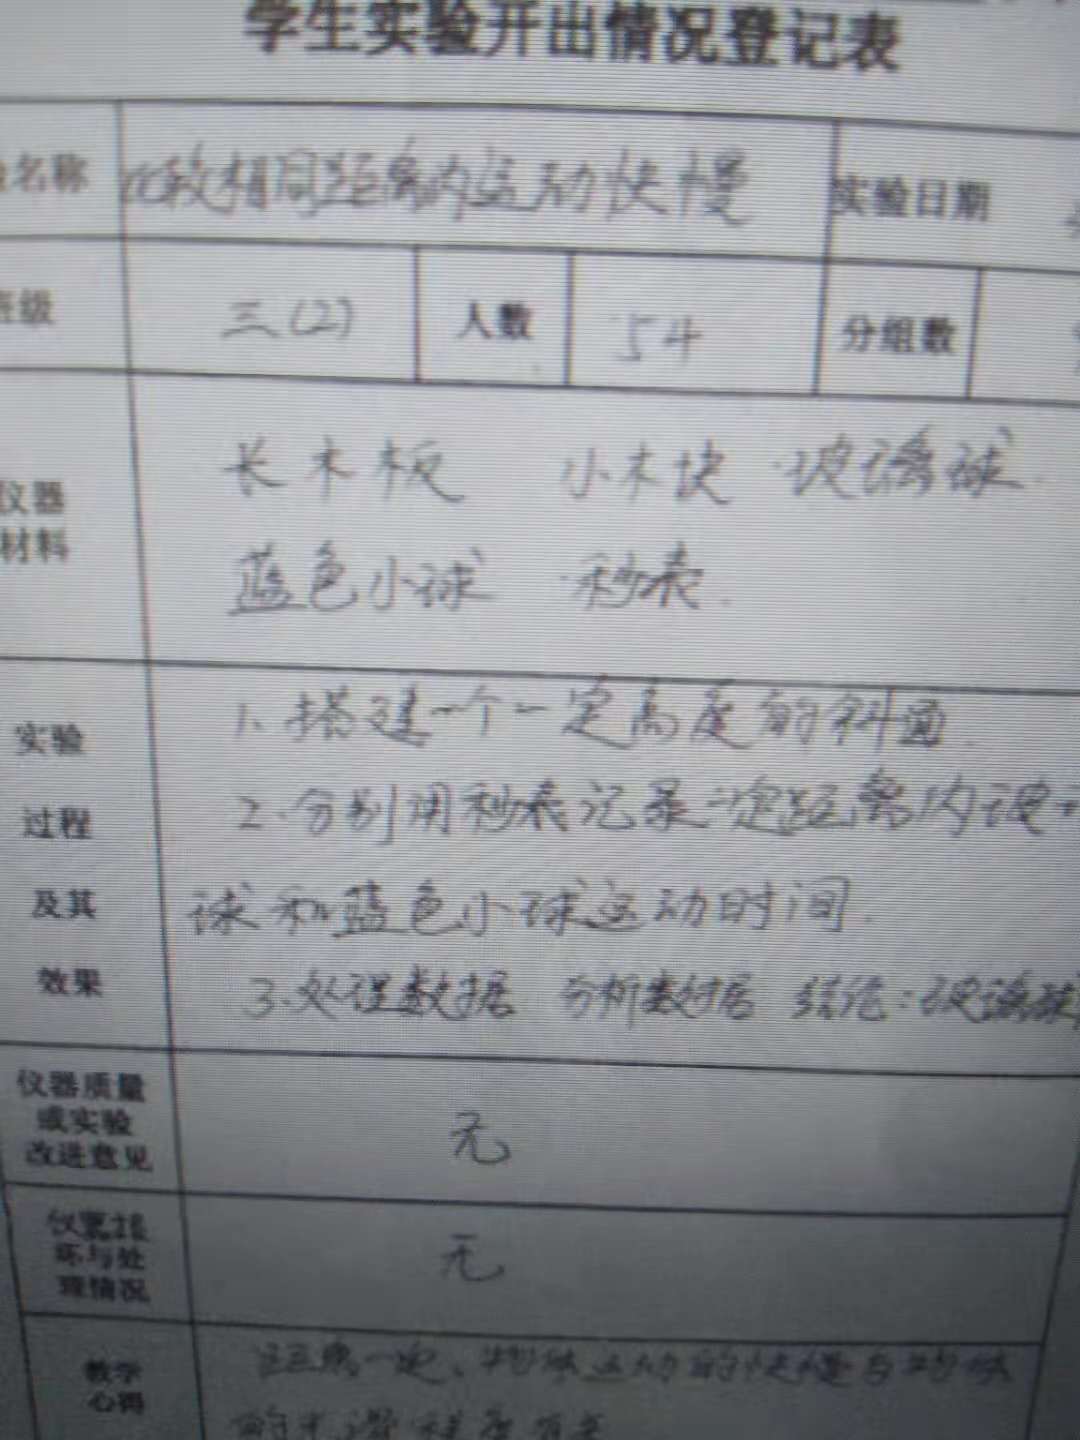 学生实验开出情况登记表
名称 比较相同距离内运动快慢 实验日期
班级 三(2) 人数 54 分组数
仪器
材料
长木板 小木块 玻璃球
蓝色小球 秒表
实验
过程
及其
效果
1.搭建一个一定高度的斜面
2.分别用秒表记录一定距离内玻
球和蓝色小球运动时间.
3.处理数据 分析数据 结论:玻璃球
仪器质量
或实验
改进意见
无
仪器损
坏与处
理情况
无
教学
心得
距离一定、物体运动的快慢与物体
的光滑程度有关